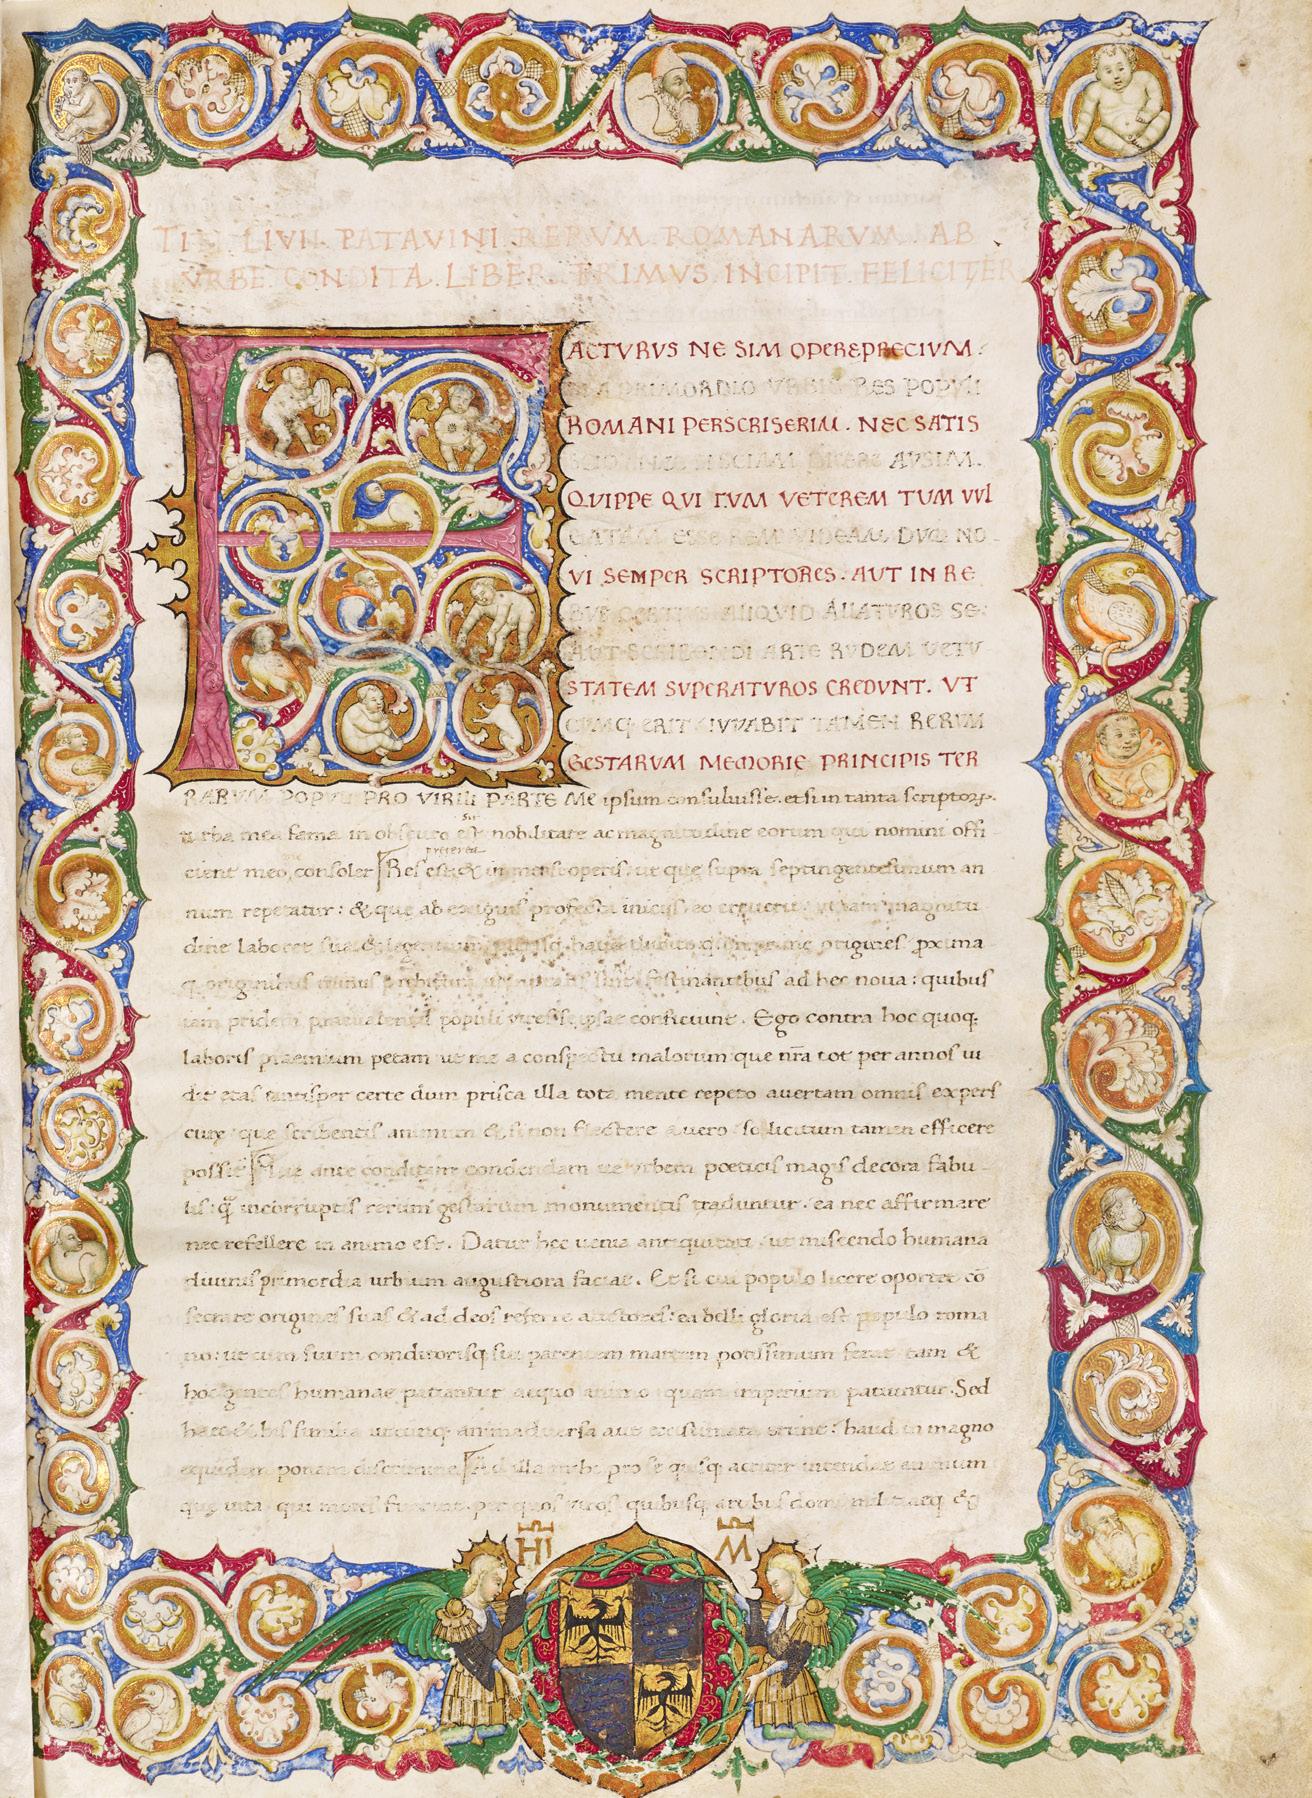 TITI LIVII PATAVINI RERVM ROMANARVM AB
VRBE CONDITA LIBER PRIMVS INCIPIT FELICITER
FACTVRVS NE SIM OPEREPRECIVM
SI A PRIMORDIO VRBIS RES POPVLI
ROMANI PERSCRISERIM . NEC SATIS
SCIO NEC SI SCIAM DICERE AVSIM.
QVIPPE QVI TVM VETEREM TVM VVL
GATAM ESSE REM VIDEAM DVM NO
VI SEMPER SCRIPTORES . AVT IN RE
BVS CERTIVS ALIQVID ALLATVROS SE
AVT SCRIBENDI ARTE RVDEM VETV
STATEM SVPERATVROS CREDVNT. VT
CVMQ ERIT IVVABIT TAMEN RERVM
GESTARVM MEMORIE PRINCIPIS TER
RARVM POPVLI PRO VIRILI PARTE ME ipsum consuluisse. et si in tanta scriptorꝝ
turba mea fama in obscuro est nobilitate ac magnitudine eorum qui nomini offi
cient meo consoler Res est preterea & immensi operis: ut que supra septingentesimum an
num repetatur: & que ab exiguis profecta iniciis eo creuerit magnitu
dine laboret sua & legentium haud dubito origines proxima
q originibus minus festinantibus ad hec noua: quibus
iam pridem praeualentis populi uires se ipsae conficiunt. Ego contra hoc quoq
laboris praemium petam ut me a conspectu malorum que nr̄a tot per annos ui
dit etas tantisper certe dum prisca illa tota mente repeto auertam omnis expers
cure que scribentis animum & si non flectere a uero sollicitum tamen efficere
possit Que ante conditam condendam ue urbem poeticis magis decora fabu
lis: q̄ incorruptis rerum gestarum monumentis traduntur. ea nec affirmare
nec refellere in animo est. Datur hec uenia antiquitati ut miscendo humana
diuinis primordia urbium augustiora faciat. Et si cui populo licere oportet cō
secrare origines suas & ad deos referre auctores: ea belli gloria est populo roma
no: ut cum suum conditorisq sui parentem martem potissimum ferat tam &
hoc gentes humanae patiantur aequo animo quam imperium patiuntur. Sed
haec & his similia utcunq animaduersa aut existimata erunt: haud in magno
equidem ponam discrimine Ad illa mihi pro se quisq acriter intendat animum
que uita qui mores fuerint. per quos uiros quibusq artibus domi militiaeq &
HI M